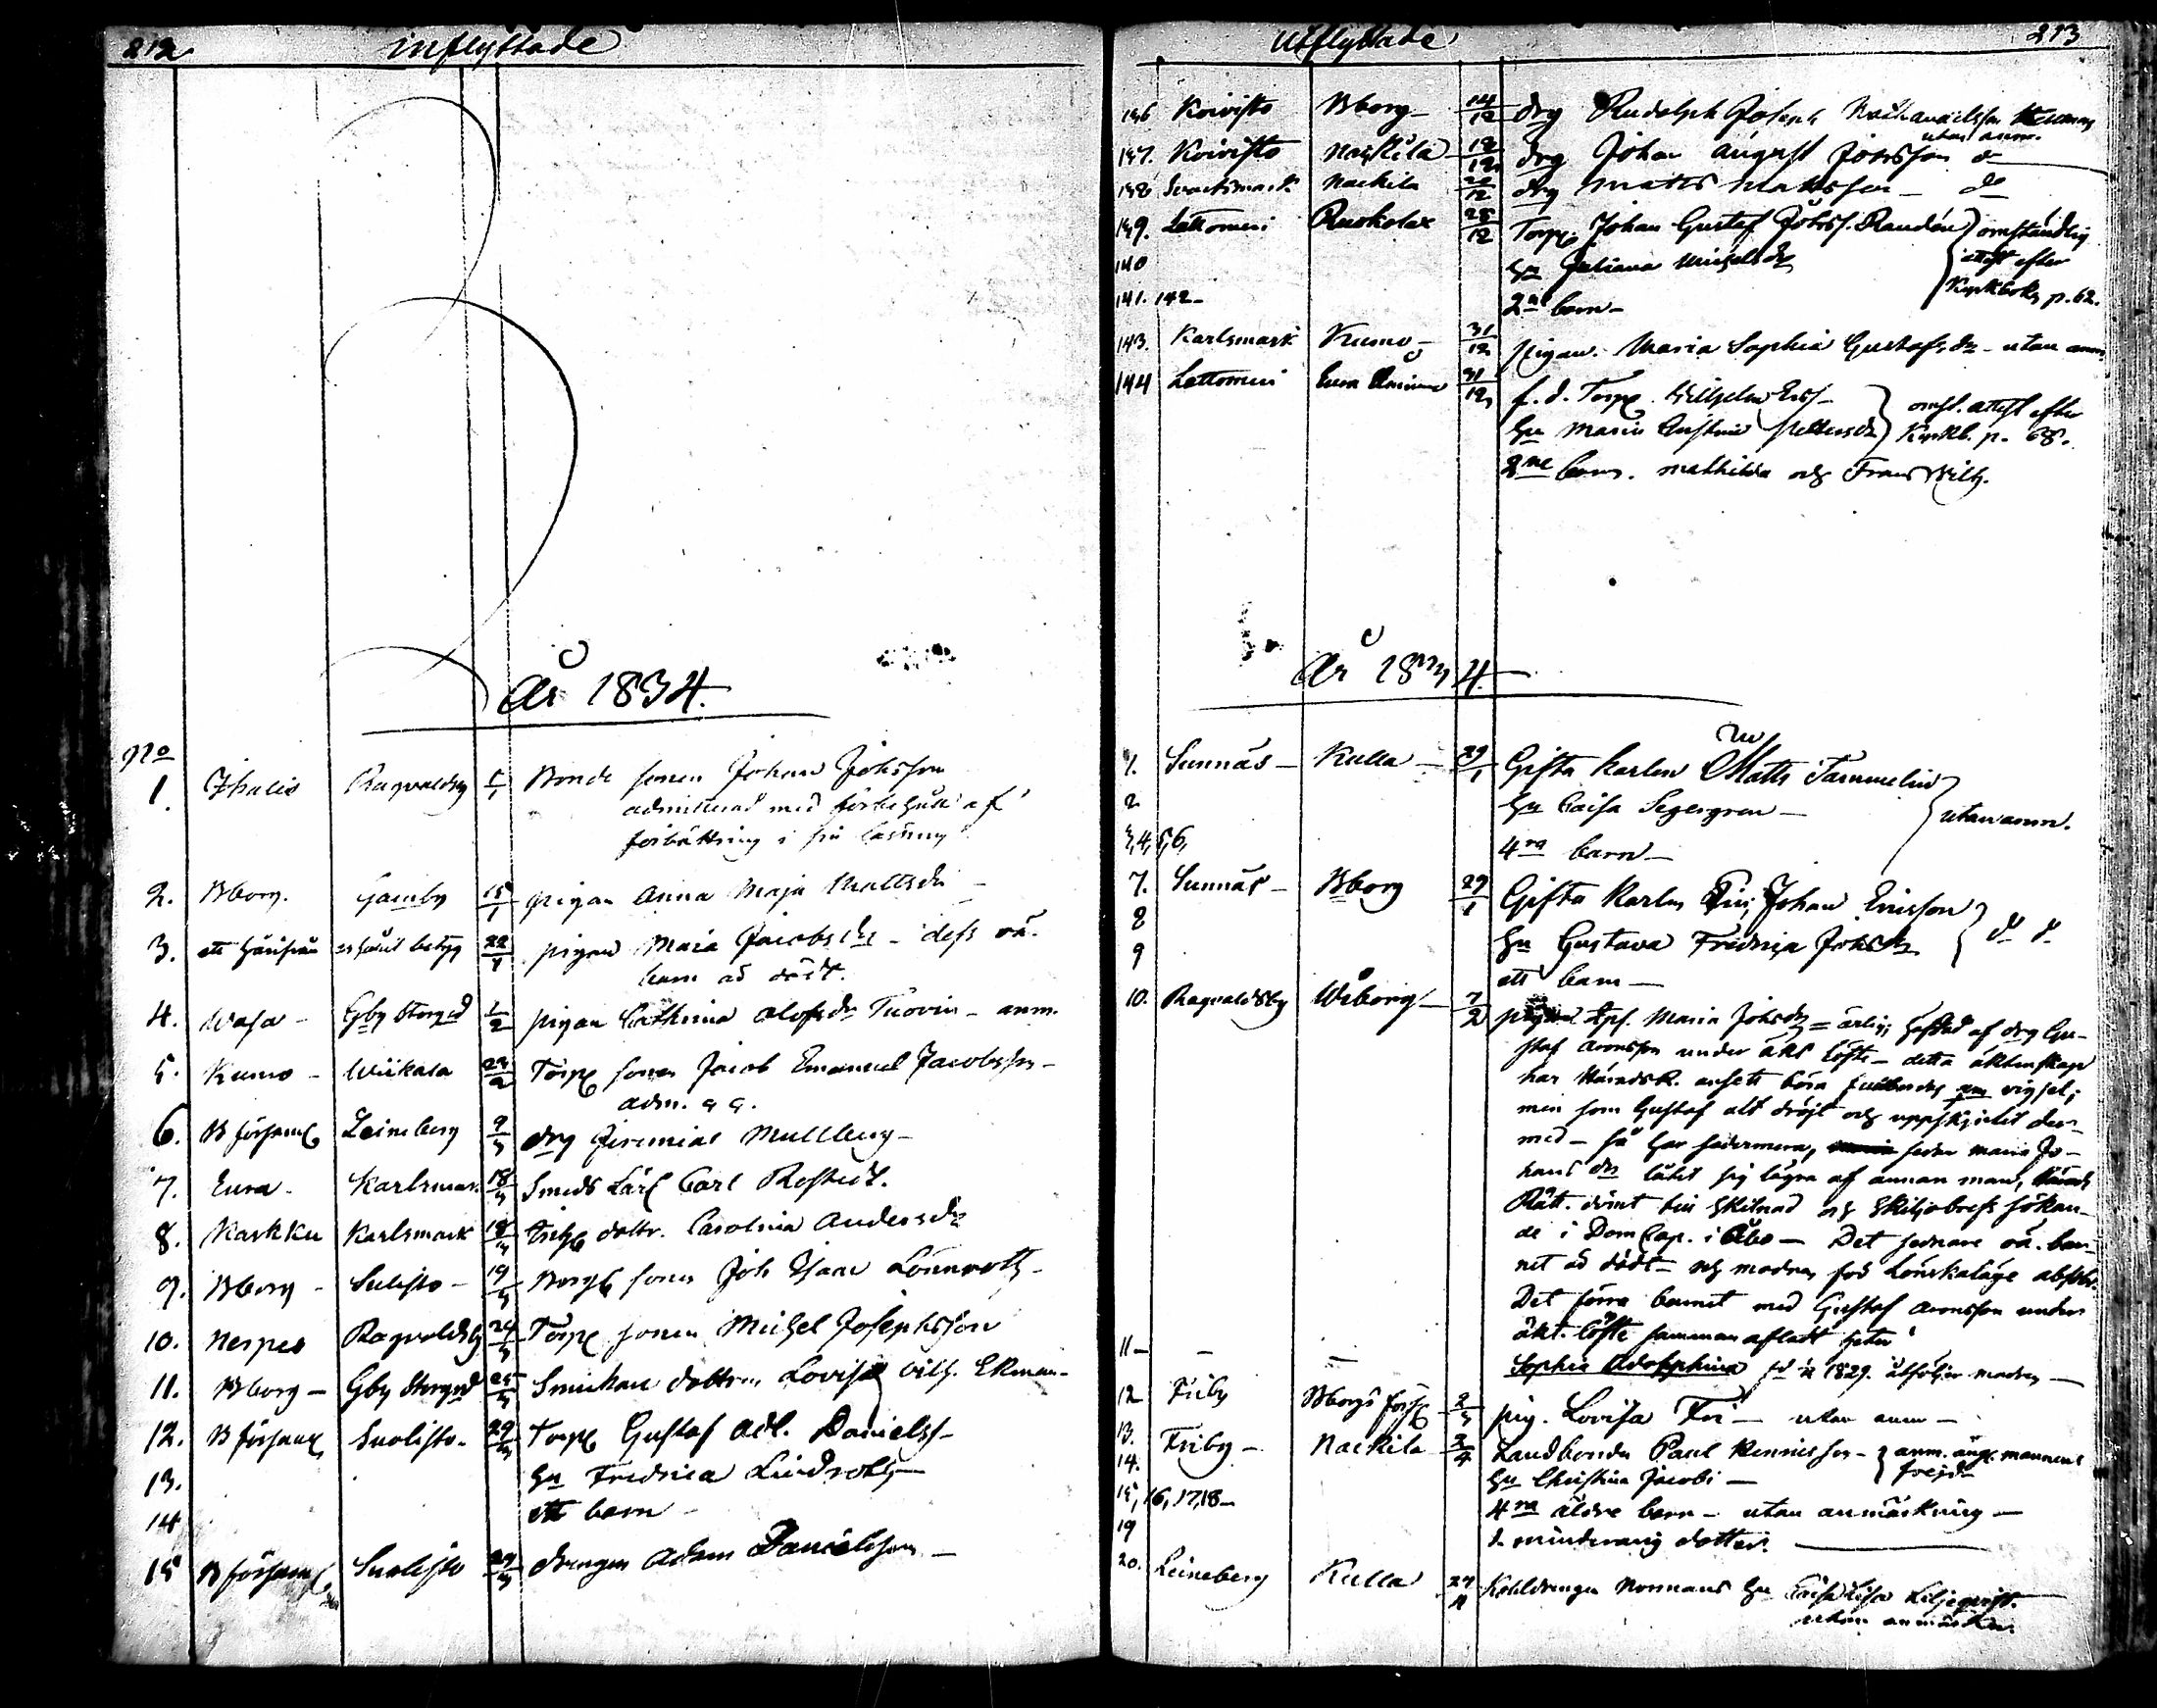 212 inflyttade
År 1834.
No
1. Ragvaldsby Bonde sonen Johan Johsson
admitterad med förbehåll af
förbättring i sin läsning
2. Bborg. Gamby 15/1 pigan Anna Maja Mattsdr
3. ett betyg 22/1 pigan Maria Jacobsdr - dess oä.
barn ab dödt.
4. Wasa - Gby Storgd pigan Cathrina Olofsdr Tuovin - anm.
5. Kumo - Wiikala Torp sonen Jacob Emanuel Jacobsson -
adm.
6. B församl Leineberg drg Jeremias Mullberg -
7. Eura - Karlsmark 18/3 Smeds Lärl Carl Rostedt.
8. Karkku Karlsmark dottr. Carolina Andersdr
9. Bborg - Suolisto - 19/3 sonen Joh Isaac Lönnroth -
10. Nerpes Ragvaldsby 24/3 Torp sonen Michel Josephsson
11. Bborg - Gby Storgrd 25/3 dottren Lovisa Vilh. Ekman -
12. B församl Suolisto - 29/3 Torp Gustaf Adl. Danielss -
13. Hu Fredrica Lindroth -
14 ett barn -
15 B församl Suolisto 29/3 drengen Adam Danielsson -
utflyttade 213
136 Koivisto Bborg - 14/12 drg Rudolph Joseph
utan anm.
137. Koivisto Nackila 19/12 drg Johan August Johsson do
138 Svartsmark Nackila 20/12 drg Matts Mattsson - do
139. Lattomeri Ruokolax 28/12 Torp. Johan Gustaf Johss. Randén omständlig
140 Hu Juliana Michelsdr attest efter
141. 142 - 2ne barn - Kyrkbokn p. 62.
143. Karlsmark Kumo - 31/12 pigan Maria Sophia Gustafsdr - utan anm
144 Lattomeri Eura 31/12 f. d. Torp. Wilhelm Erss - omst. attest efter
Hu Maria Christina Pettersdr Kyrkb. p. 68.
2ne barn. Mathilda och Frans Wilh.
År 1834.
1. Sunnäs - Kulla - 29/1 Gifta Karlen Matts Tammelin
2 Hu Caisa Segergren - utan anm.
3, 4, 5, 6, 4ra barn -
7. Sunnäs - Bborg 29/1 Gifta Karlen Johan Ericsson
8 Hu Gustava Fredrica Johsdr do do
9 ett barn -
10. Ragvaldsby Wiborg - 7/2 Maria Johsdr = ärlig häfdad af drg Gu-
staf Aronsson under äkt. löfte - detta äktenskap
har HäradsR. ansett böra fullbordas vigsel;
men som Gustaf alt dröjt och uppskjutit der-
med - så har sedermera, sedan Maria Jo-
hans dr låtit sig lägra af annan man, Härads
Rätt. dömt till skilnad och skiljobrefs sökan-
de i Dom Cap. i Åbo - Det sednare oä. bar-
net ab dödt - och modren för Lönskaläge absolv.
Det förra barnet med Gustaf Aronsson under
äkt. löfte sammanafladt heter
11 - - - Sophia Adolphina 1829. åtföljer modren -
12 Friby Bborgs förs pig. Lovisa Fri - utan anm -
13. Friby - Nackila Landbonden Paul - anm. ang. mannens
14. Hu Christina Jacobi - frejd -
15, 16, 17, 18 - 4ra äldre barn - utan anmärkning -
19 1 minderårig dotter.
20. Leineberg Kulla Normans Hu Caisa Lisa Liljeqvist.
utan anmärkn.